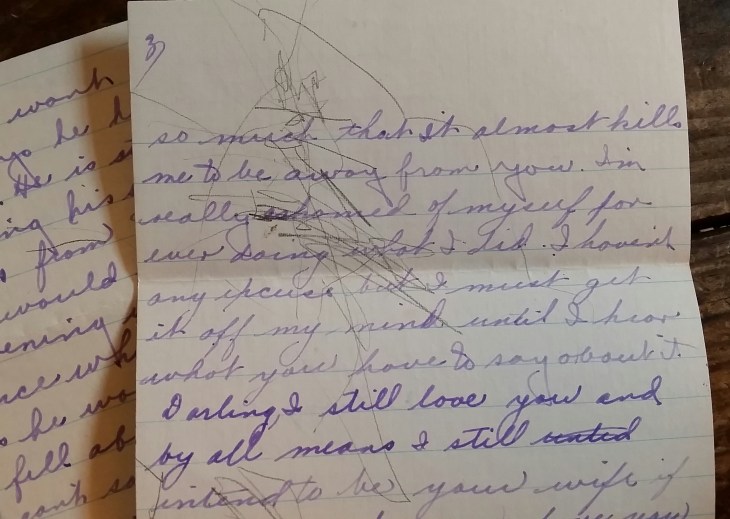 want
go he
He is
ing his
from
would
ening
nce wh
he wo
fell ab
can't so
3)
so much that it almost kills
me to be away from you. I'm
really ashamed of myself for
ever doing what I did. I haven't
any excuse but I must get
it off my mind until I hear
what you have to say about it.
Darling I still love you and
by all means I still
intend to be your wife if
you